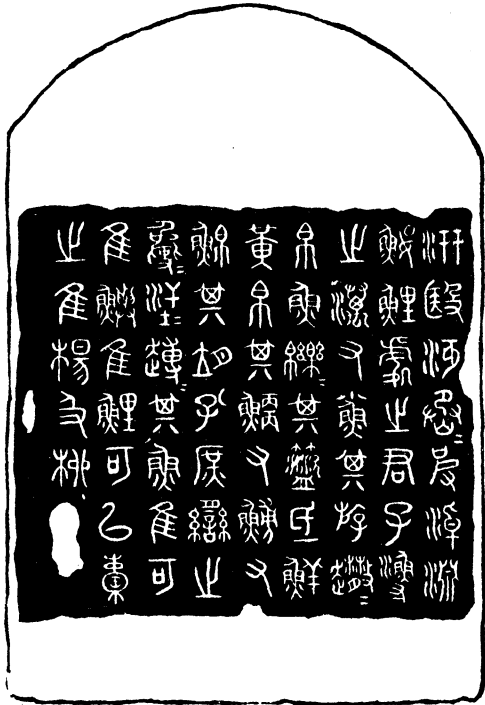 汧殹沔丞彼淖淵
鰋鯉處之君子漁
之澫又小魚其斿趣
帛魚皪其盜氐鮮
黃帛其鯾又鰟又
鯆其孔庶臠之
汗趩其魚隹可
隹鱮隹鯉可㠯橐
之隹楊及柳